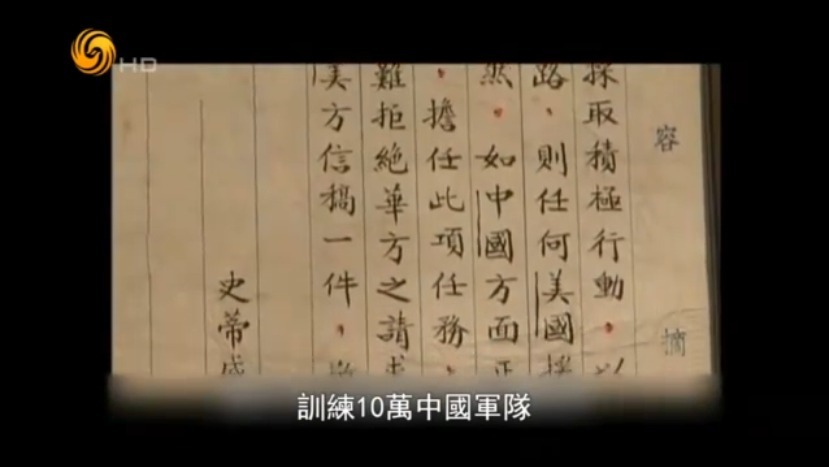 HD
容 摘
採取積極行動，以
路，則任何美國援
然。如中國方面正
，擔任此項任務，
難拒絕華方之請求
美方信稿一件，
史蒂
訓練10萬中國軍隊